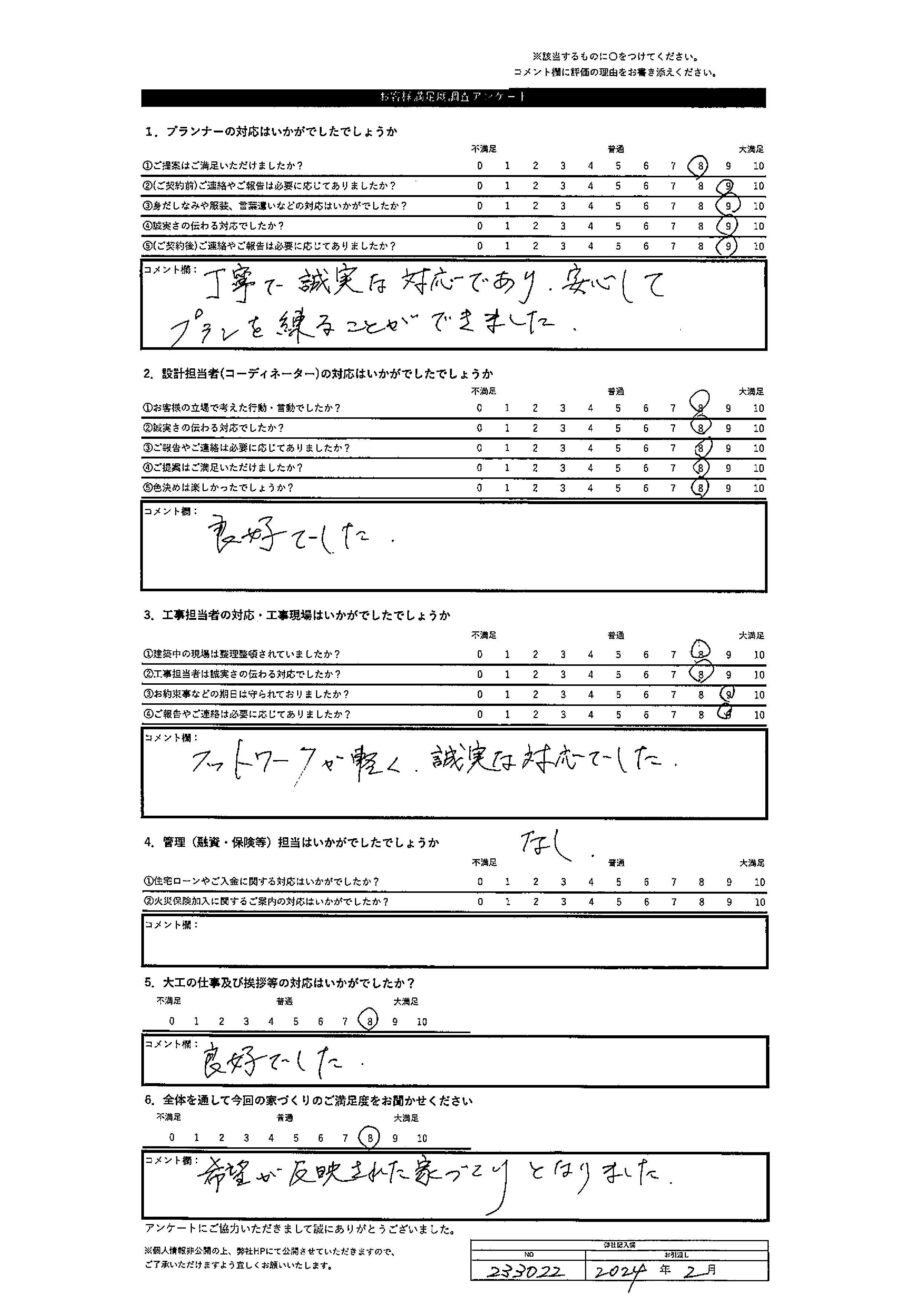 ※該当するものに○をつけてください。
コメント欄に評価の理由をお書き添えください。
お客様満足度調査アンケート
1．プランナーの対応はいかがでしたでしょうか
不満足 普通 大満足
①ご提案はご満足いただけましたか？ 0 1 2 3 4 5 6 7 8 9 10
②(ご契約前)ご連絡やご報告は必要に応じてありましたか？ 0 1 2 3 4 5 6 7 8 9 10
③身だしなみや服装、言葉遣いなどの対応はいかがでしたか？ 0 1 2 3 4 5 6 7 8 9 10
④誠実さの伝わる対応でしたか？ 0 1 2 3 4 5 6 7 8 9 10
⑤(ご契約後)ご連絡やご報告は必要に応じてありましたか？ 0 1 2 3 4 5 6 7 8 9 10
コメント欄： 丁寧で誠実な対応であり、安心して
プランを練ることができました．
2．設計担当者(コーディネーター)の対応はいかがでしたでしょうか
不満足 普通 大満足
①お客様の立場で考えた行動・言動でしたか？ 0 1 2 3 4 5 6 7 8 9 10
②誠実さの伝わる対応でしたか？ 0 1 2 3 4 5 6 7 8 9 10
③ご報告やご連絡は必要に応じてありましたか？ 0 1 2 3 4 5 6 7 8 9 10
④ご提案はご満足いただけましたか？ 0 1 2 3 4 5 6 7 8 9 10
⑤色決めは楽しかったでしょうか？ 0 1 2 3 4 5 6 7 8 9 10
コメント欄： 良好でした．
3．工事担当者の対応・工事現場はいかがでしたでしょうか
不満足 普通 大満足
①建築中の現場は整理整頓されていましたか？ 0 1 2 3 4 5 6 7 8 9 10
②工事担当者は誠実さの伝わる対応でしたか？ 0 1 2 3 4 5 6 7 8 9 10
③お約束事などの期日は守られておりましたか？ 0 1 2 3 4 5 6 7 8 9 10
④ご報告やご連絡は必要に応じてありましたか？ 0 1 2 3 4 5 6 7 8 9 10
コメント欄： フットワークが軽く、誠実な対応でした．
4．管理（融資・保険等）担当はいかがでしたでしょうか なし．
不満足 普通 大満足
①住宅ローンやご入金に関する対応はいかがでしたか？ 0 1 2 3 4 5 6 7 8 9 10
②火災保険加入に関するご案内の対応はいかがでしたか？ 0 1 2 3 4 5 6 7 8 9 10
コメント欄：
5．大工の仕事及び挨拶等の対応はいかがでしたか？
不満足 普通 大満足
0 1 2 3 4 5 6 7 8 9 10
コメント欄： 良好でした．
6．全体を通して今回の家づくりのご満足度をお聞かせください
不満足 普通 大満足
0 1 2 3 4 5 6 7 8 9 10
コメント欄： 希望が反映された家づくりとなりました．
アンケートにご協力いただきまして誠にありがとうございました。
※個人情報非公開の上、弊社HPにて公開させていただきますので、
ご了承いただけますよう宜しくお願いいたします。
弊社記入欄
NO お引渡し
233022 2024 年 2 月